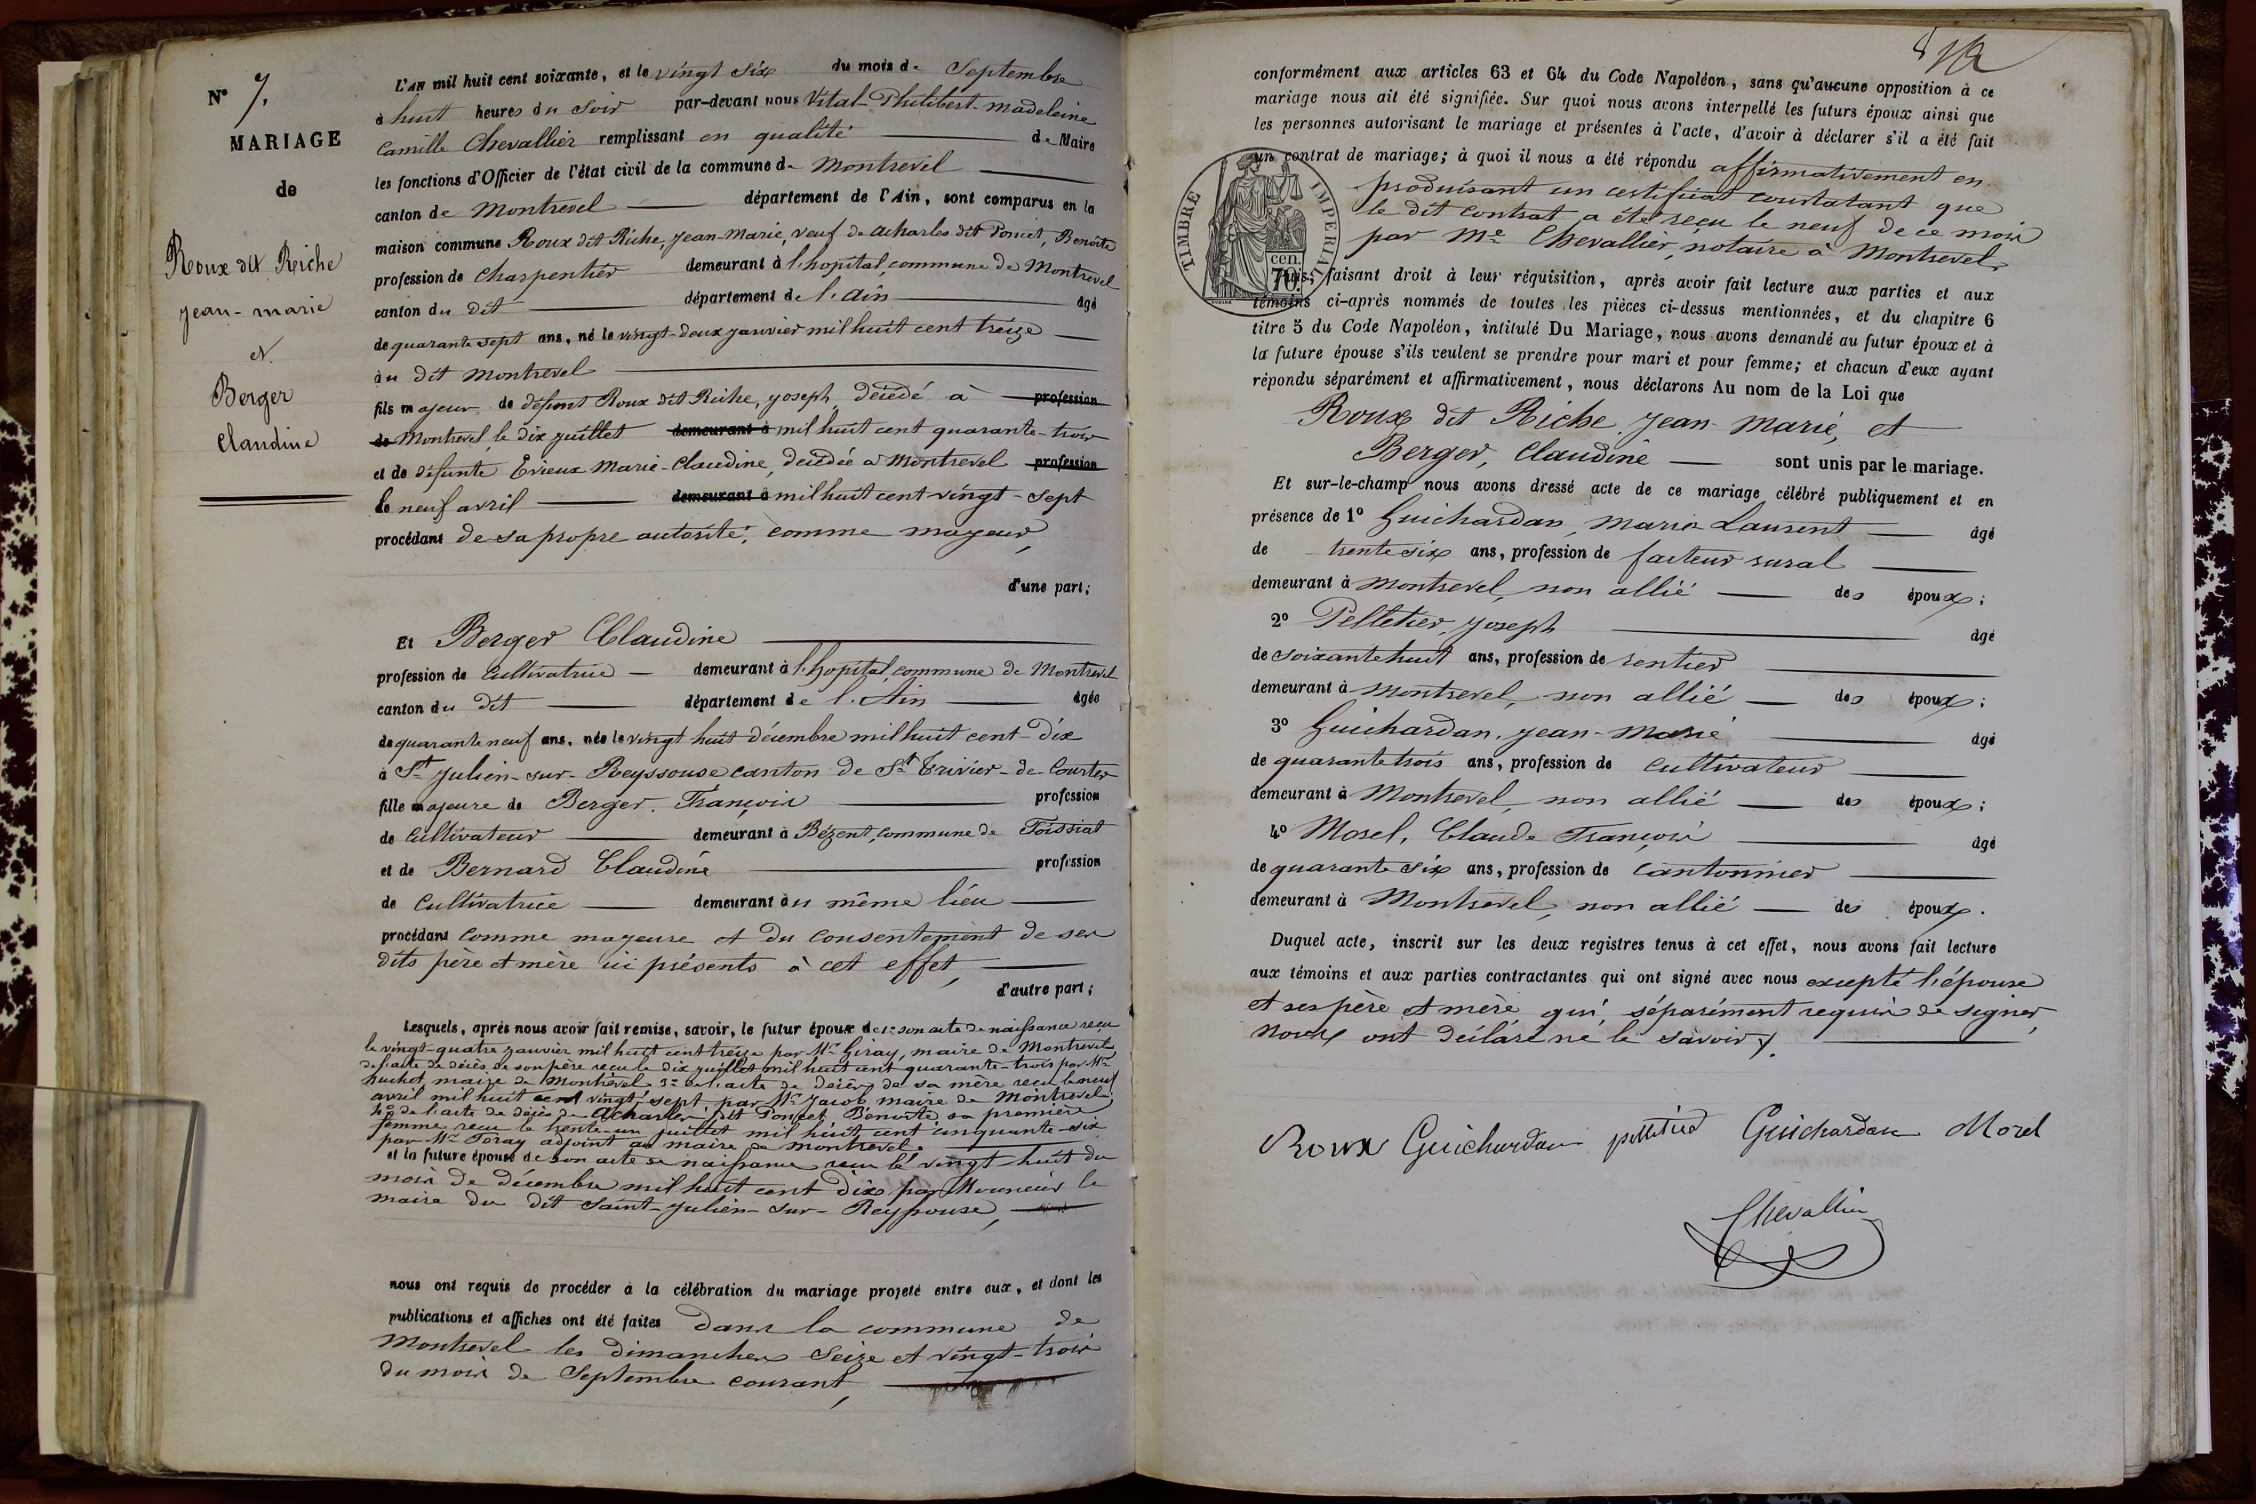 N° 7.
MARIAGE
de
Roux dit Riche
Jean-marie
et
Berger
Claudine
L'an mil huit cent soixante, et le vingt six du mois de Septembre
à huit heures du Soir par-devant nous Vital-Philibert-madeleine
Camille Chevallier remplissant en qualité de Maire
les fonctions d'Officier de l'état civil de la commune de Montrevel
canton de Montrevel département de l'Ain, sont comparus en la
maison commune Roux dit Riche, Jean-Marie, veuf de acharles dit Poncet, Benoite
profession de Charpentier demeurant à l'hopital, commune de Montrevel
canton du dit département de l'ain âgé
de quarante sept ans, né le vingt-deux janvier mil huit cent treize
au dit Montrevel
fils majeur de défunt Roux dit Riche, joseph, décédé à profession
de Montrevel, le dix juillet demeurant à mil huit cent quarante-trois
et de défunte Evieux Marie-Claudine, décédée à Montrevel profession
le neuf avril demeurant à mil huit cent vingt-sept
procédant de sa propre autorité, comme majeur,
d'une part;
Et Berger Claudine
profession de Cultivatrice demeurant à l'hopital, commune de Montrevel
canton du dit département de l'Ain âgée
de quarante neuf ans, née le vingt huit décembre mil huit cent-dix
à St Julien-sur-Reyssouse canton de St Trivier-de-Courtes
fille majeure de Berger, François profession
de Cultivateur demeurant à Bézent, commune de Foissiat
et de Bernard Claudine profession
de Cultivatrice demeurant au même lieu
procédant comme majeure et du consentement de ses
dits père et mère ici présents à cet effet,
d'autre part;
Lesquels, après nous avoir fait remise, savoir, le futur époux de 1° son acte de naissance reçu
le vingt-quatre janvier mil huit cent treize par Mr Giray, maire de Montrevel
de l'acte de décès de son père reçu le dix juillet mil huit cent quarante-trois par Mr
huchet maire de Montrevel 3° de l'acte de décès de sa mère reçu le neuf
avril mil huit cent vingt-sept par Mr Jacob maire de Montrevel;
4° de l'acte de décès de Acharles dit Poncet Benoite sa première
femme reçu le trente-un juillet mil huit cent cinquante-six
par Mr Foray adjoint au maire de Montrevel.
et la future épouse de son acte de naissance reçu le vingt-huit du
mois de décembre mil huit cent dix par Monsieur le
maire du dit Saint-Julien-sur-Reyssouse,
nous ont requis de procéder à la célébration du mariage projeté entre eux, et dont les
publications et affiches ont été faites dans la commune de
Montrevel les dimanches Seize et vingt-trois
du mois de Septembre courant,
conformément aux articles 63 et 64 du Code Napoléon, sans qu'aucune opposition à ce
mariage nous ait été signifiée. Sur quoi nous avons interpellé les futurs époux ainsi que
les personnes autorisant le mariage et présentes à l'acte, d'avoir à déclarer s'il a été fait
un contrat de mariage; à quoi il nous a été répondu affirmativement en
produisant un certificat constatant que
le dit contrat a été reçu le neuf de ce mois
par Me Chevallier, notaire à Montrevel
TIMBRE IMPERIAL
cen.
70.
Puis, faisant droit à leur réquisition, après avoir fait lecture aux parties et aux
témoins ci-après nommés de toutes les pièces ci-dessus mentionnées, et du chapitre 6
titre 5 du Code Napoléon, intitulé Du Mariage, nous avons demandé au futur époux et à
la future épouse s'ils veulent se prendre pour mari et pour femme; et chacun d'eux ayant
répondu séparément et affirmativement, nous déclarons Au nom de la Loi que
Roux dit Riche, Jean-Marie, et
Berger, Claudine sont unis par le mariage.
Et sur-le-champ nous avons dressé acte de ce mariage célébré publiquement et en
présence de 1° Guichardan, Marie Laurent âgé
de trente six ans, profession de facteur rural
demeurant à Montrevel, non allié des époux;
2° Pelletier, joseph âgé
de soixante huit ans, profession de rentier
demeurant à Montrevel, non allié des époux;
3° Guichardan, Jean-Marie âgé
de quarante trois ans, profession de cultivateur
demeurant à Montrevel, non allié des époux;
4° Morel, Claude François âgé
de quarante six ans, profession de Cantonnier
demeurant à Montrevel, non allié des époux.
Duquel acte, inscrit sur les deux registres tenus à cet effet, nous avons fait lecture
aux témoins et aux parties contractantes qui ont signé avec nous excepté l'épouse
et ses père et mère qui, séparément requis de signer,
nous ont déclaré ne le savoir.
Roux Guichardan pelletied Guichardan Morel
Chevallier